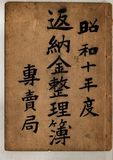 昭和十年度
返納金整理簿
專賣局